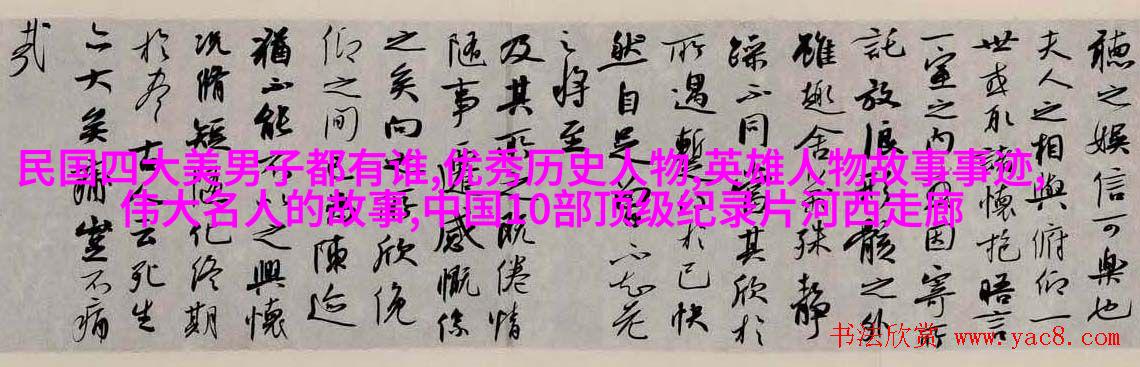 民国四大美男子都有谁,优秀历史人物,英雄人物故事事迹,
伟大名人的故事,中国10部顶级纪录片河西走廊
聴之娱信可樂也
夫人之相與俯仰一
世或取諸懷抱晤言
一室之内因寄所
託放浪形骸之外
雖趣舍殊静
躁不同其欣於
所遇暫於己快
然自足不知老
之將至
及其所之既倦情
隨事遷感慨係
之矣向之欣俛
仰之間陳迹
猶不能不以之興懷
况脩短化終期
於盡古人云死生
亦大矣豈不痛
哉
书法欣赏 www.yac8.com